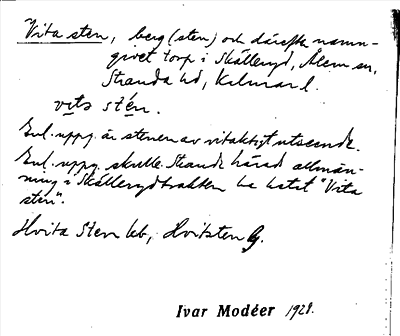 Vita sten, berg (sten) och därefter namn-
givet torp i Skälleryd, Ålem sn,
Stranda hd, Kalmar l.
vi̱ta sté̱n.
Enl. uppg. är stenen av vitaktigt utseende.
Enl. uppg. skulle Stranda härad allmän-
ning i Skällerydtrakten ha hetat "Vita
sten".
Hvita Sten kb, Hvitsten
Ivar Modéer 1928.